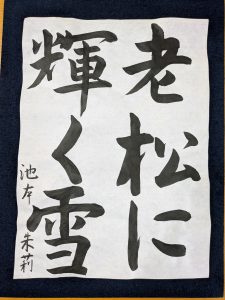 老松に
輝く雪
池本 朱莉